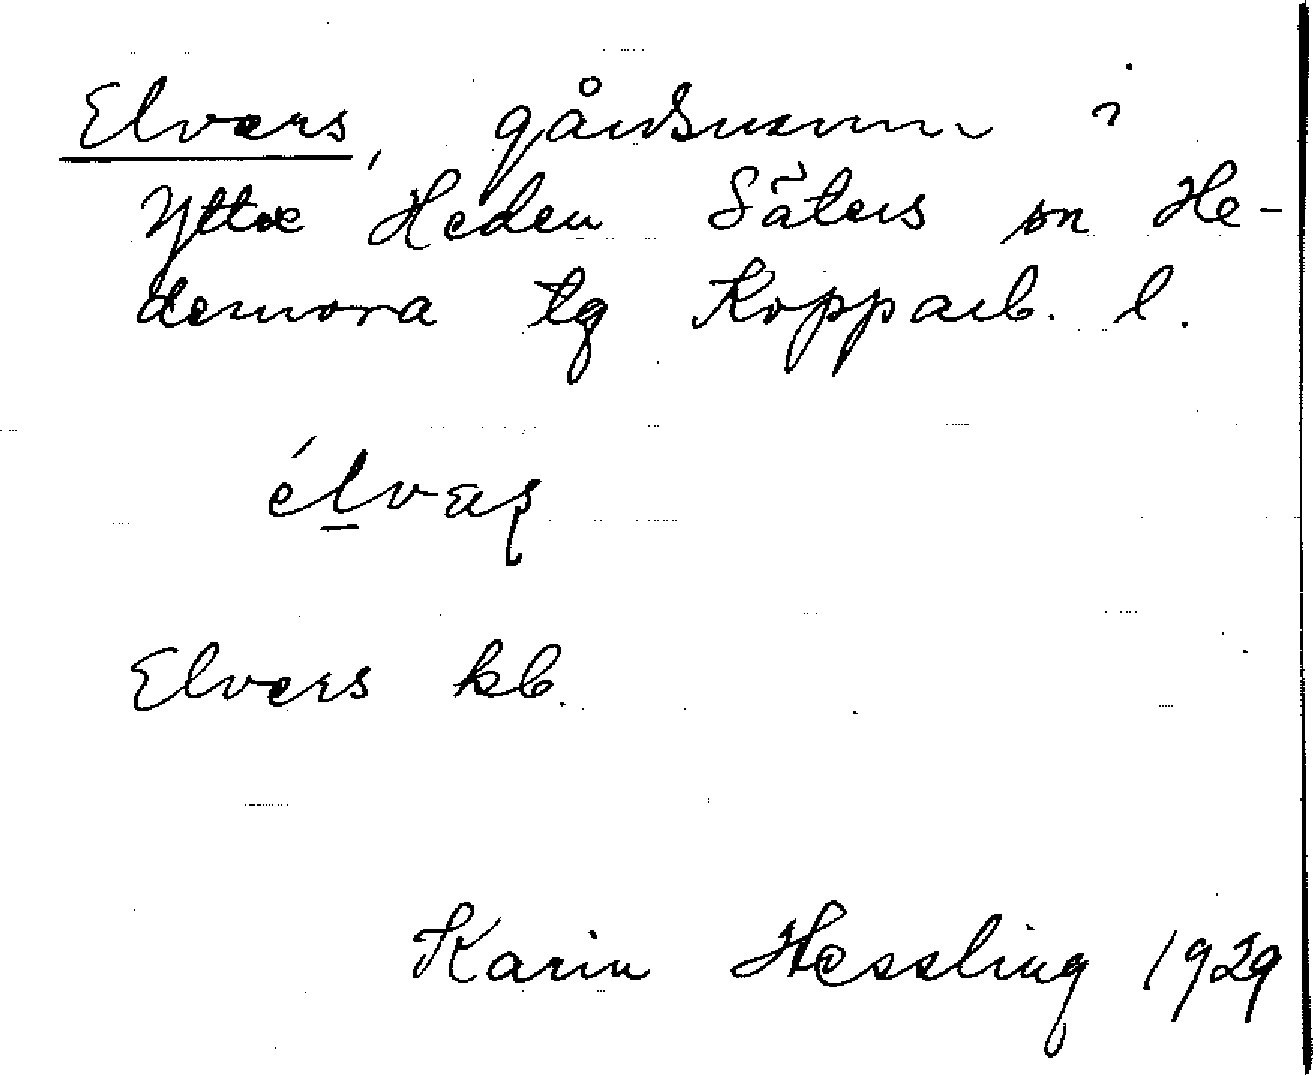 Elvers, gårdsnamn i
Yttre Heden Säters sn He-
demora tg Kopparb. l.
élvas̩
Elvers kb.
Karin Hessling 1929